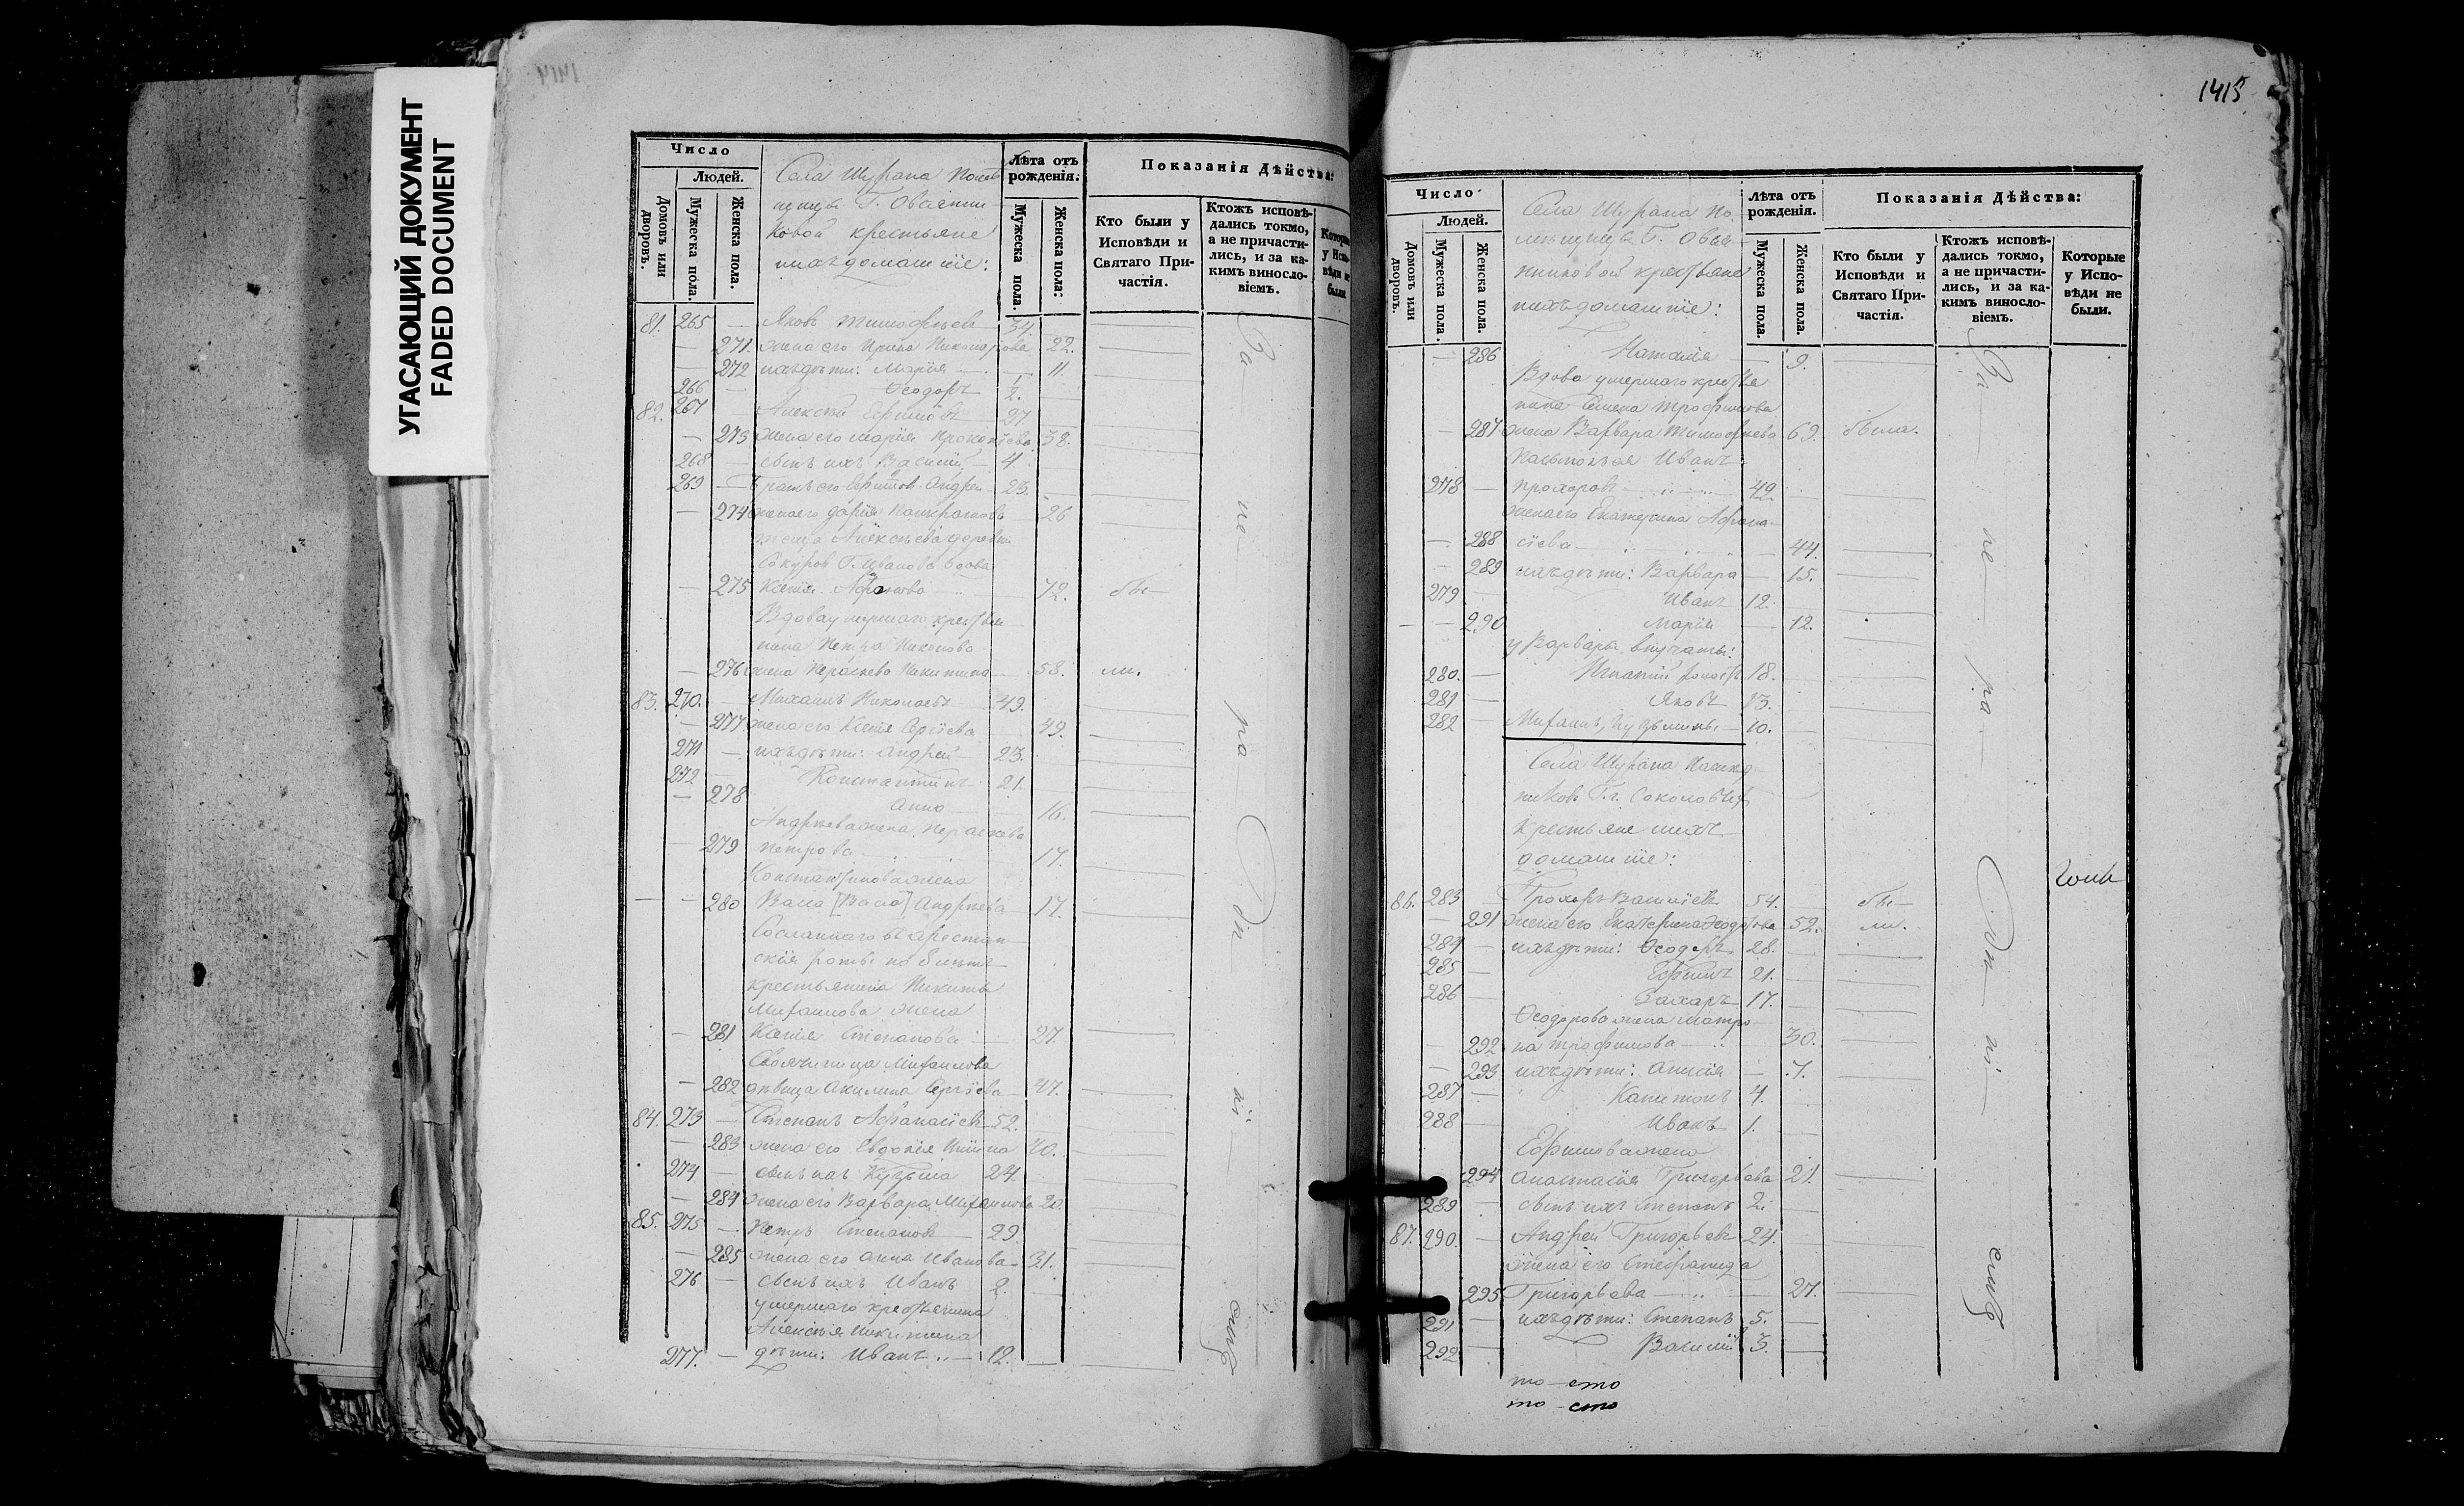 УГАСАЮЩИЙ ДОКУМЕНТ
FADED DOCUMENT
1414
Число
Людей.
Домовъ или дворовъ.
Мужеска пола.
Женска пола.
Села Шурана Помѣ
щицы Г. Овсянни
ковой крестьяне
ихъ домашніе:
Лѣта отъ рожденія:
Мужеска пола.
Женска пола:
Показанія Дѣйства:
Кто были у Исповѣди и Святаго Причастія.
Ктожъ исповѣдались токмо, а не причастились, и за какимъ винословіемъ.
Которые у Исповѣди не были.
81. 265 — Яковъ Тимофѣевъ 34.
— 271. жена его Ирина Никонорова 22.
— 272 ихъ дѣти: Марія — 11.
266 — Ѳеодоръ 1/2.
82. 267 — Алексѣй Ефимовъ 27
— 273 жена его Марія Прокопіева 38.
268 — сынъ ихъ Василій — 4
269 — Братъ его Ефимов Андрей 23.
— 274 жена его Дарія 26
теща Алексѣева деревни
вдова
— 275 Ксенія 72. бы—
Вдова умершаго крестья
нина Петра
— 276 жена Параскева Никитина — 58. ли.
83. 270. — Михаилъ Николаевъ 49.
— 277 жена его Ксенія Сергіева 49.
271 — ихъ дѣти: Андрей 23.
272 — Константинъ 21.
— 278 Анна 16.
Андреева жена Параскева
— 279 Петрова 17.
Константинова жена
— — 280 Васса [Васса] Андреева 17.
Сосланнаго въ арестан
скія роты
крестьянина Никиты
Михаилова жена
— 281 Ксенія Степанова 27.
Свояченица Михаилова
— 282 дѣвица Акилина Сергіева 47.
84. 273 — Степанъ Афанасіевъ 52.
— 283 жена его Евдокія 40.
274 — сынъ ихъ Кузьма 24.
— 284 жена его Варвара Михаилова 20.
85. 275 — Петръ Степановъ 29
— 285 жена его Анна Иванова 31.
276 — сынъ ихъ Иванъ 2.
умершаго крестьянина
Алексѣя Никитина
277. — дѣти: Иванъ — 12.
За — не — ра — дѣ — ні — емъ
1415
Число
Людей.
Домовъ или дворовъ.
Мужеска пола.
Женска пола.
Села Шурана По
мѣщицы Г. Овся
нниковой крестьяне
ихъ домашніе:
Лѣта отъ рожденія.
Мужеска пола.
Женска пола.
Показанія Дѣйства:
Кто были у Исповѣди и Святаго Причастія.
Ктожъ исповѣдались токмо, а не причастились, и за какимъ винословіемъ.
Которые у Исповѣди не были.
— 286 Наталія — 9.
Вдова умершаго крестья
нина Семена Трофимова
— 287 жена Варвара Тимофѣева 69. была.
Иванъ
278 — Прохоровъ 42.
жена его Екатерина Афана
— 288 сіева 44.
— 289 ихъ дѣти: Варвара — 15.
279 — Иванъ 12.
— — 290 Марія — 12.
у Варвары внучаты:
280. — Игнатій 18.
281 — Яковъ 13.
282 Михаилъ, 10.
Села Шурана Наслѣд
никовъ Г.г. Соколовых
крестьяне ихъ
домашніе:
86. 283 — Прохоръ Василіевъ 54. бы—
— 291 жена его Екатерина Ѳеодотова 52. ли.
284 — ихъ дѣти: Ѳеодоръ 28.
285 — Ефимъ 21.
286 — Захаръ 17.
Ѳеодорова жена Матро
— 292 на Трофимова 30.
— 293 ихъ дѣти: Анисія — 7.
287 — Капитонъ 4.
288 — Иванъ 1.
Ефимова жена
294 Анастасія Григорьева 21.
289 — сынъ ихъ Степанъ 2.
87. 290. — Андрей Григорьевъ 24.
жена его Стефанида
295 Григорьева — 27.
291 — ихъ дѣти: Степанъ 5.
292 — Василій 3.
За — не — ра — дѣ — ні — емъ
то — сто
то — сто